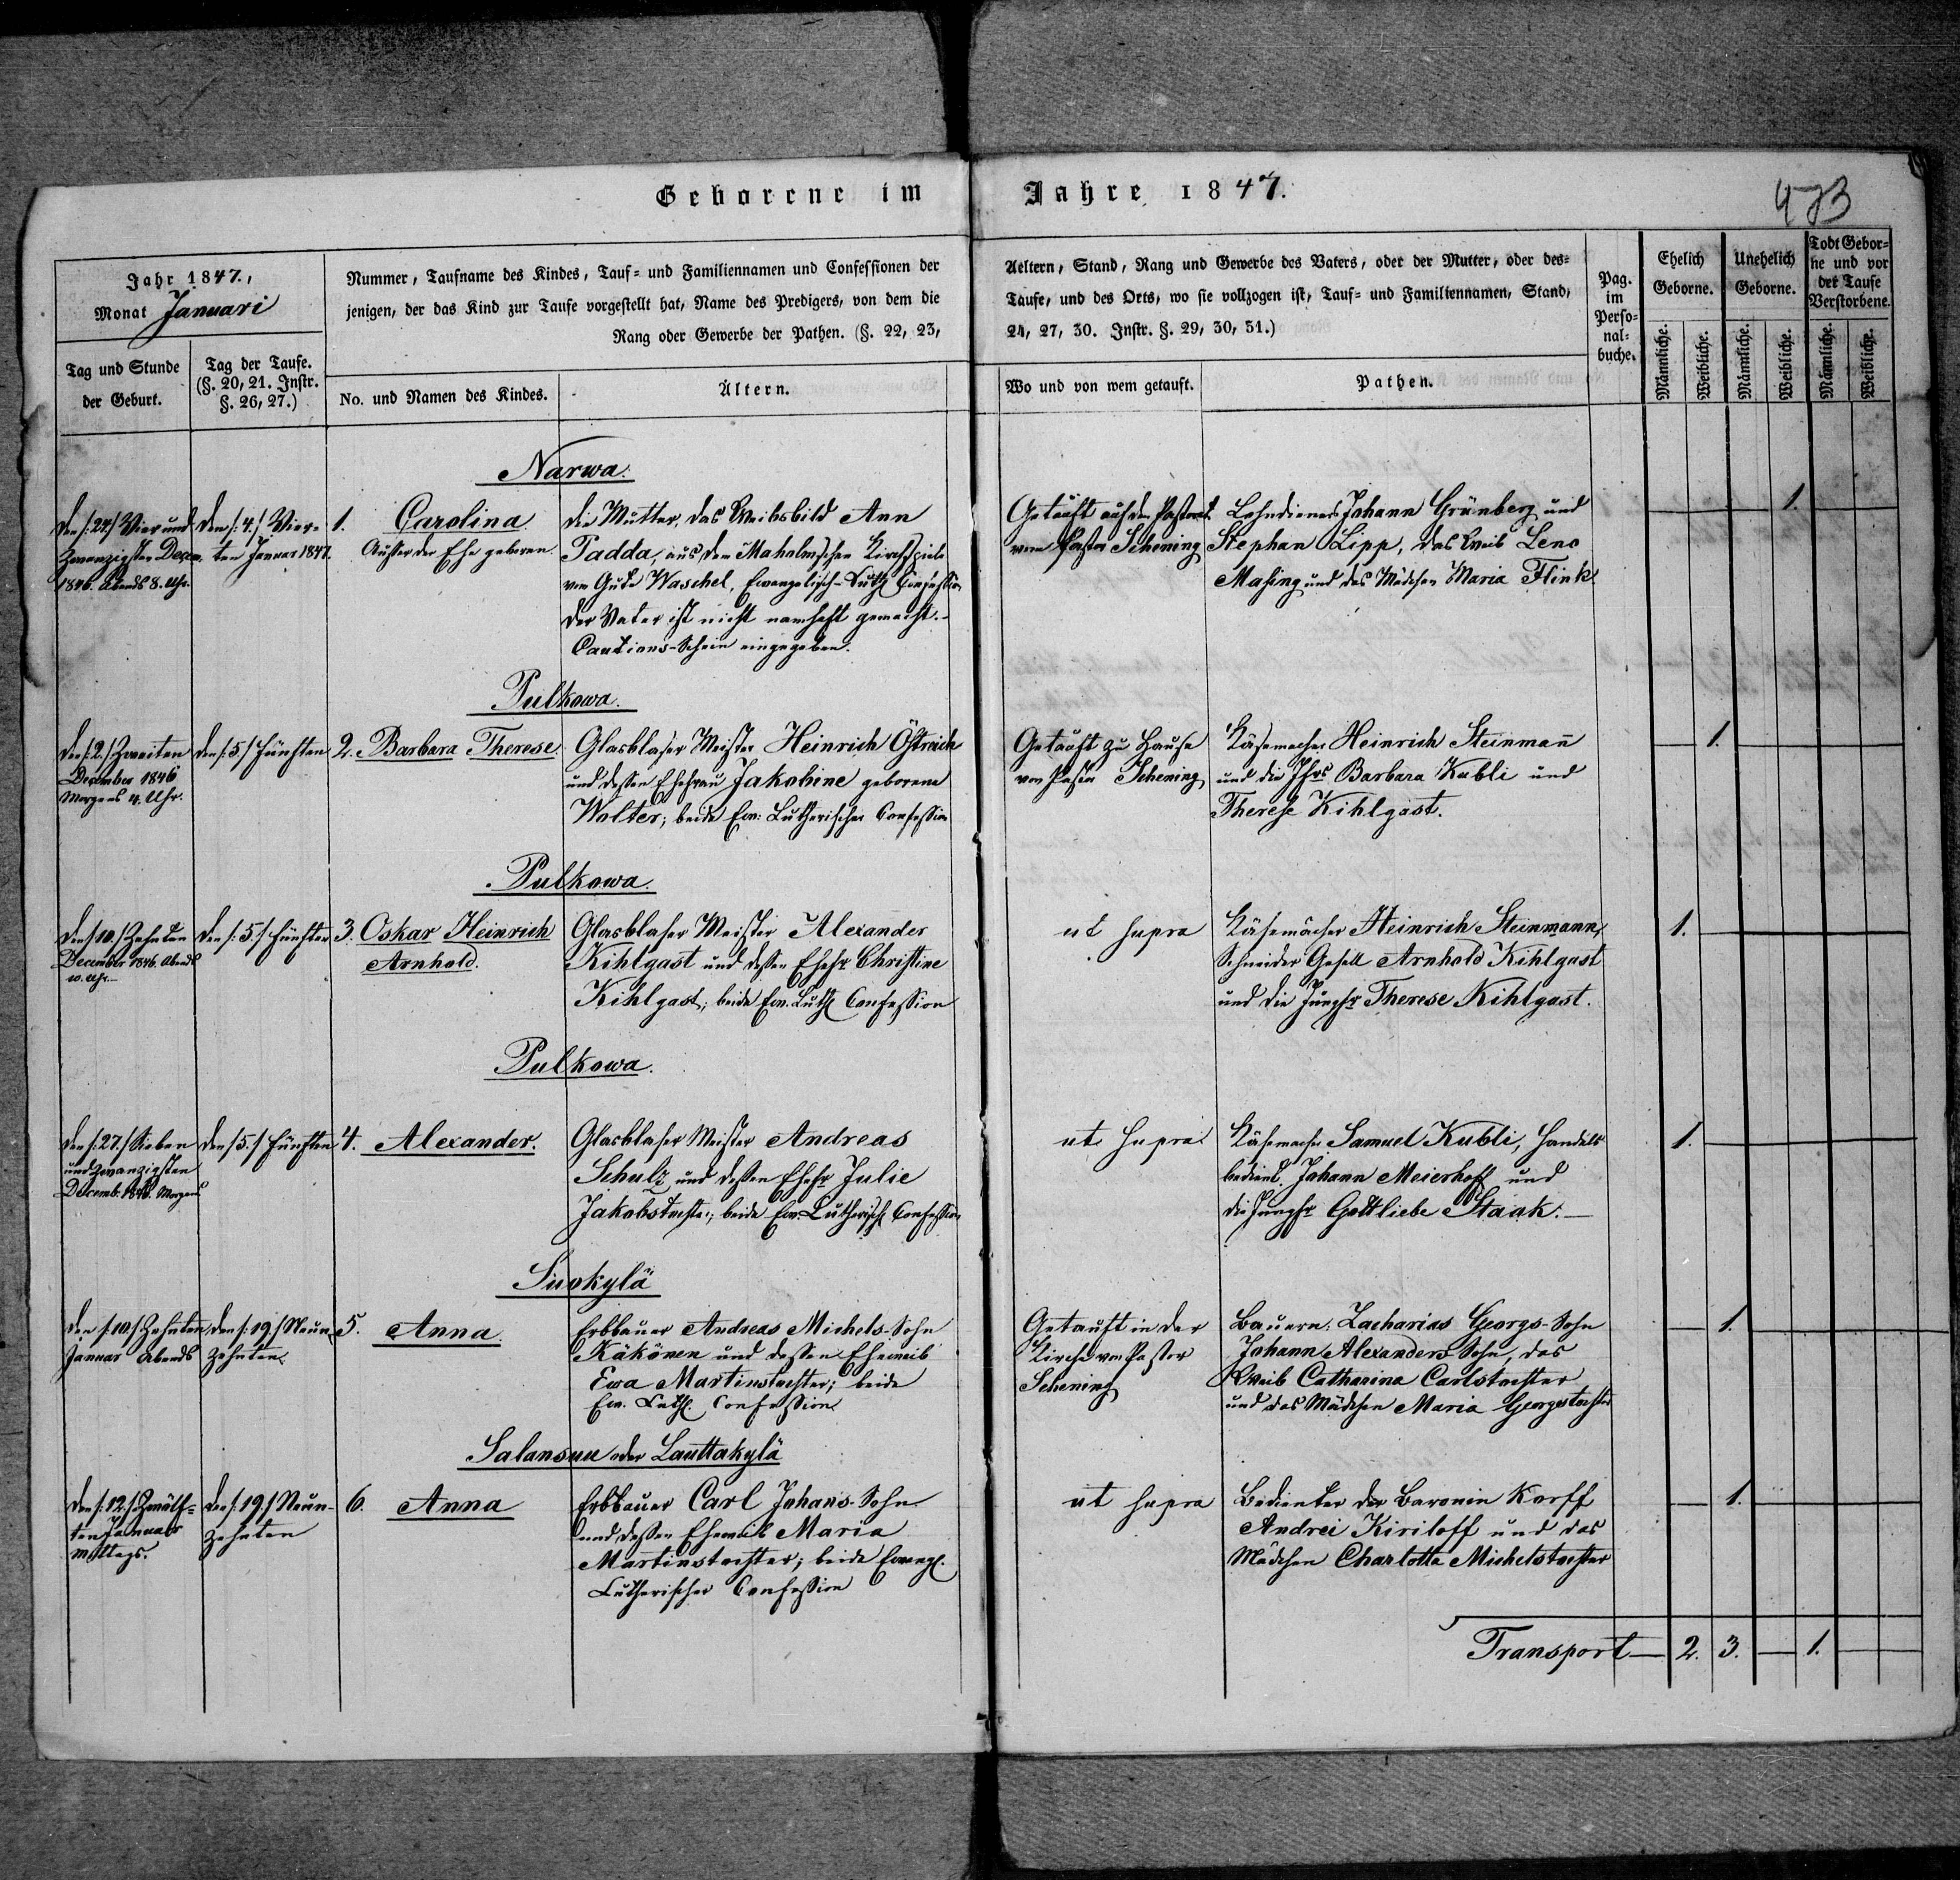 Geborene im Jahre 1847.
473
Jahr 1847,
Monat Januari
Nummer, Taufname des Kindes, Tauf- und Familiennamen und Confessionen der
jenigen, der das Kind zur Taufe vorgestellt hat, Name des Predigers, von dem die
Rang oder Gewerbe der Pathen. (§. 22, 23,
Tag und Stunde
der Geburt.
Tag der Taufe.
(§. 20, 21. Instr.
§. 26, 27.)
No. und Namen des Kindes.
Ältern.
Aeltern, Stand, Rang und Gewerbe des Vaters, oder der Mutter, oder des-
Taufe, und des Orts, wo sie vollzogen ist, Tauf- und Familiennamen, Stand,
24, 27, 30. Instr. §. 29, 30, 31.)
Wo und von wem getauft.
Pathen.
Pag.
im
Perso-
nal-
buche.
Ehelich
Geborne.
Unehelich
Geborne.
Todt Gebor-
ne und vor
der Taufe
Verstorbene.
Männliche.
Weibliche.
Männliche.
Weibliche.
Männliche.
Weibliche.
Narwa.
Den /:24./ Vier und
Zwanzigsten Decem.
1846. Abends 8. Uhr.
Den /:4./ Vier-
ten Januar 1847.
1. Carolina
Außer der Ehe geboren.
Die Mutter, das Weibsbild Ann
Padda, aus dem Maholmschen Kirchspiele
vom Gute Waschel, Evangelisch-Luth. Confession
Der Vater ist nicht namhaft gemacht.-
Cautions-Schein eingegeben.
Getauft auf dem Pastorat
vom Pastor Schening
Lohndiener Johann Grünberg und
Stephan Lipp, das Weib Leno
Masing und das Mädchen Maria Flink
1.
Pulkowa.
Den /:2./ Zweiten
December 1846
Morgens 4. Uhr.
Den /:5/ fünften
2. Barbara Therese
Glasblaser Meister Heinrich Östreich
und dessen Ehefrau Jakobine geborene
Wolter; beide Ew: Lutherischer Confession
Getauft zu Hause
von Pastor Schening
Käsemacher Heinrich Steinmann
und die Jfrs Barbara Kubli und
Therese Kihlgast.
1.
Pulkowa.
Den /10./ Zehnten
December 1846. Abends
10. Uhr.
Den /:5./ fünften
3. Oskar Heinrich
Arnhold.
Glasblaser Meister Alexander
Kihlgast und dessen Ehefr Christine
Kihlgast; beide Ew. Luth. Confession
ut supra
Käsemacher Heinrich Steinmann,
Schneider Gesell Arnhold Kihlgast
und die Jungfr Therese Kihlgast.
1.
Pulkowa.
Den /:27./ Sieben
und zwanzigsten
Decemb. 1846. Morgens
Den /5./ fünften
4. Alexander.
Glasblaser Meister Andreas
Schulz und dessen Ehefr Julie
Jakobstochter; beide Ew. Lutherisch. Confession
ut supra
Käsemacher Samuel Kubli, Handels
bedient. Johann Meierhoff und
die Jungfr Gottliebe Staak.
1.
Suokylä
Den /:10./ Zehnten
Januar Abends
Den /:19/ Neun
Zehnten
5. Anna.
Erbbauer Andreas Michels-Sohn
Käkönen und dessen Eheweib
Ewa Martinstochter; beide
Ew. Luth. Confession
Getauft in der
Kirche von Pastor
Schening
Bauern. Zacharias Georgs-Sohn
Johann Alexanders Sohn, das
Weib Catharina Carlstochter
und das Mädchen Maria Georgstochter
1.
Salansuu oder Lauttakylä
Den /:12/ Zwölf-
ten Januar
Mittags.
Den /:19./ Neun-
Zehnten
6. Anna
Erbbauer Carl Johans-Sohn
und dessen Eheweib Maria
Martinstochter; beide Evangl.
Lutherischer Confession
ut supra
Bedienter der Baronin Korff
Andrei Kiriloff und das
Mädchen Charlotta Michelstochter
1.
Transport 2. 3. 1.